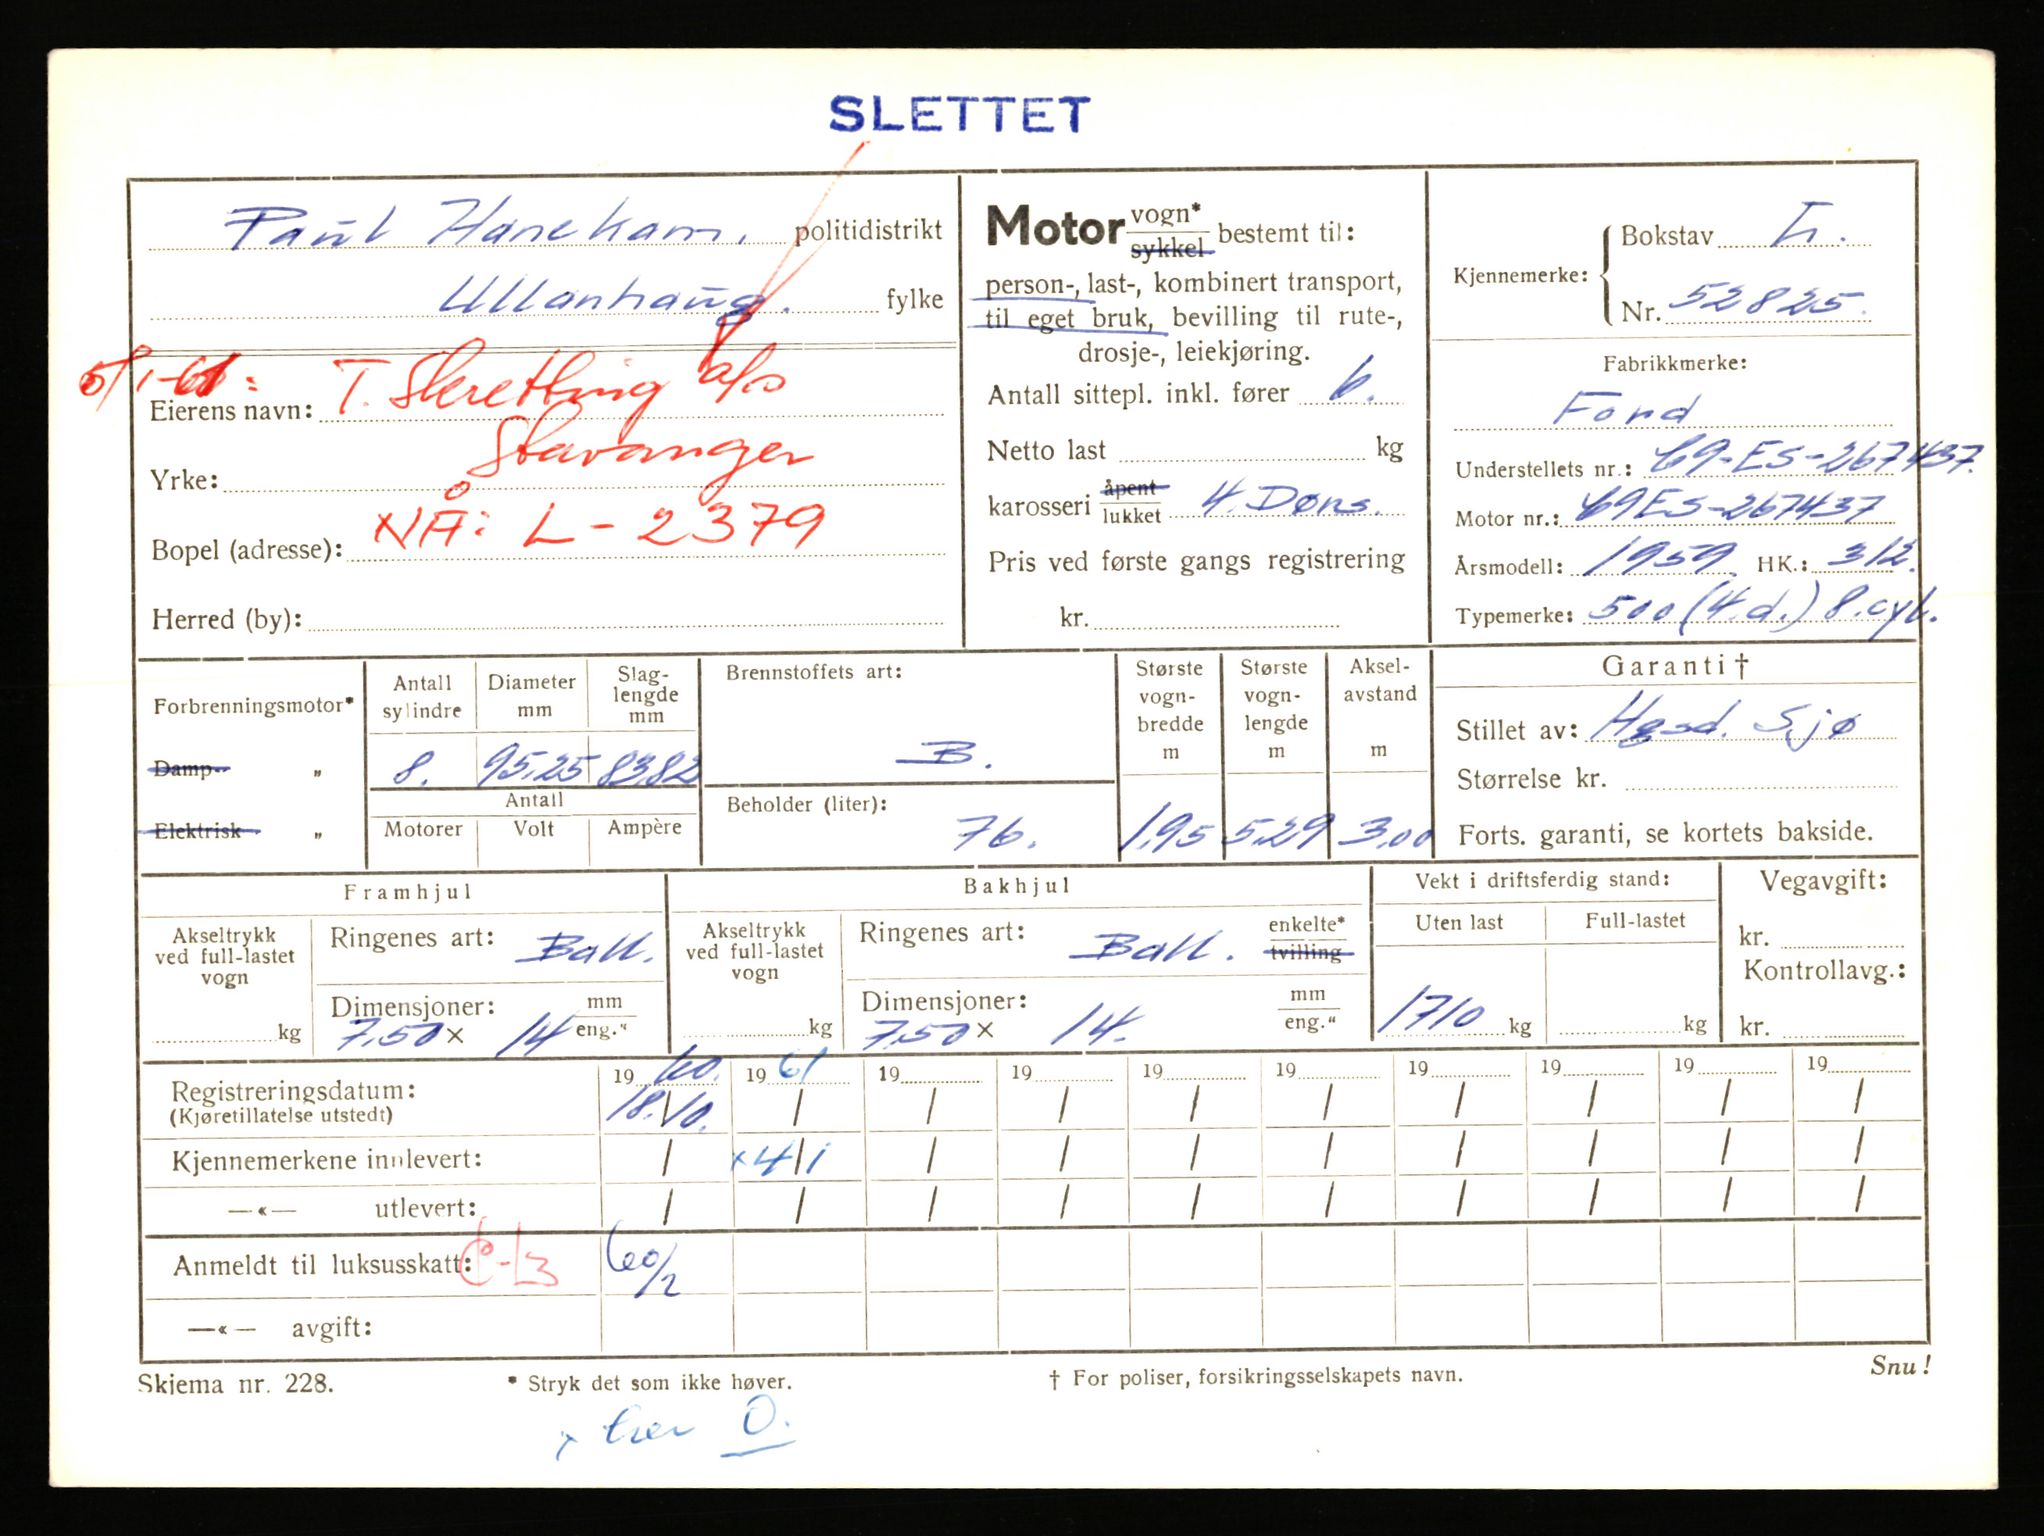 SLETTET
Paul Hanekam. politidistrikt
Ullanhaug. fylke
5/1-61: T. Skretting a/s
Eierens navn:
Stavanger
Yrke:
NÅ: L-2379
Bopel (adresse):
Herred (by):
Motor vogn* sykkel bestemt til:
person-, last-, kombinert transport,
til eget bruk, bevilling til rute-,
drosje-, leiekjøring.
Antall sittepl. inkl. fører 6.
Netto last kg
karosseri åpent lukket 4. Dørs.
Pris ved første gangs registrering
kr.
Kjennemerke:
Bokstav L.
Nr. 52825.
Fabrikkmerke:
Ford
Understellets nr.: C9-ES-267437.
Motor nr.: C9ES-267437
Årsmodell: 1959 HK.: 312.
Typemerke: 500 (4.d.) 8.cyl.
Forbrenningsmotor*
Damp- „
Elektrisk „
Antall sylindre
Diameter mm
Slag- lengde mm
8. 95.25 83.82
Antall
Motorer Volt Ampère
Brennstoffets art:
B.
Beholder (liter):
76.
Største vogn- bredde m
1,95
Største vogn- lengde m
5,29
Aksel- avstand m
3,00
Garanti †
Stillet av: Hgsd. Sjø
Størrelse kr.
Forts. garanti, se kortets bakside.
Framhjul
Akseltrykk ved full-lastet vogn
kg
Ringenes art: Ball.
Dimensjoner: mm
7,50 x 14 eng.“
Bakhjul
Akseltrykk ved full-lastet vogn
kg
Ringenes art: Ball. enkelte* tvilling
Dimensjoner: mm
7,50 x 14. eng.“
Vekt i driftsferdig stand:
Uten last Full-lastet
1710 kg kg
Vegavgift:
kr.
Kontrollavg.:
kr.
Registreringsdatum: 19 60. 19 61 19 19 19 19 19 19 19 19
(Kjøretillatelse utstedt) 18./10. / / / / / / / / /
Kjennemerkene innlevert: / x 4/1 / / / / / / / /
—«— utlevert: / / / / / / / / / /
Anmeldt til luksusskatt: 60/2
—«— avgift:
Skjema nr. 228.
* Stryk det som ikke høver.
† For poliser, forsikringsselskapets navn.
Snu!
x her O.